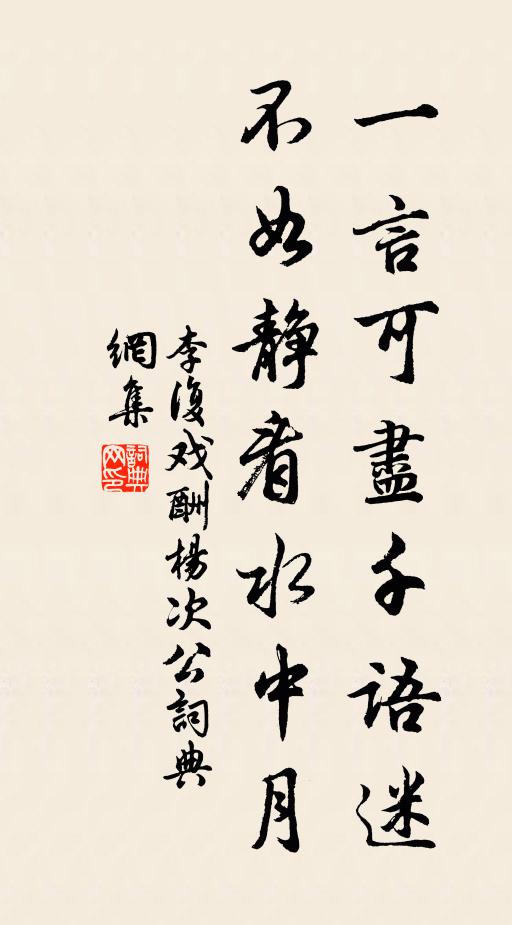 一言可盡千語迷
不如靜看水中月
李復戏酬楊次公詞典
網集
詞典
网印